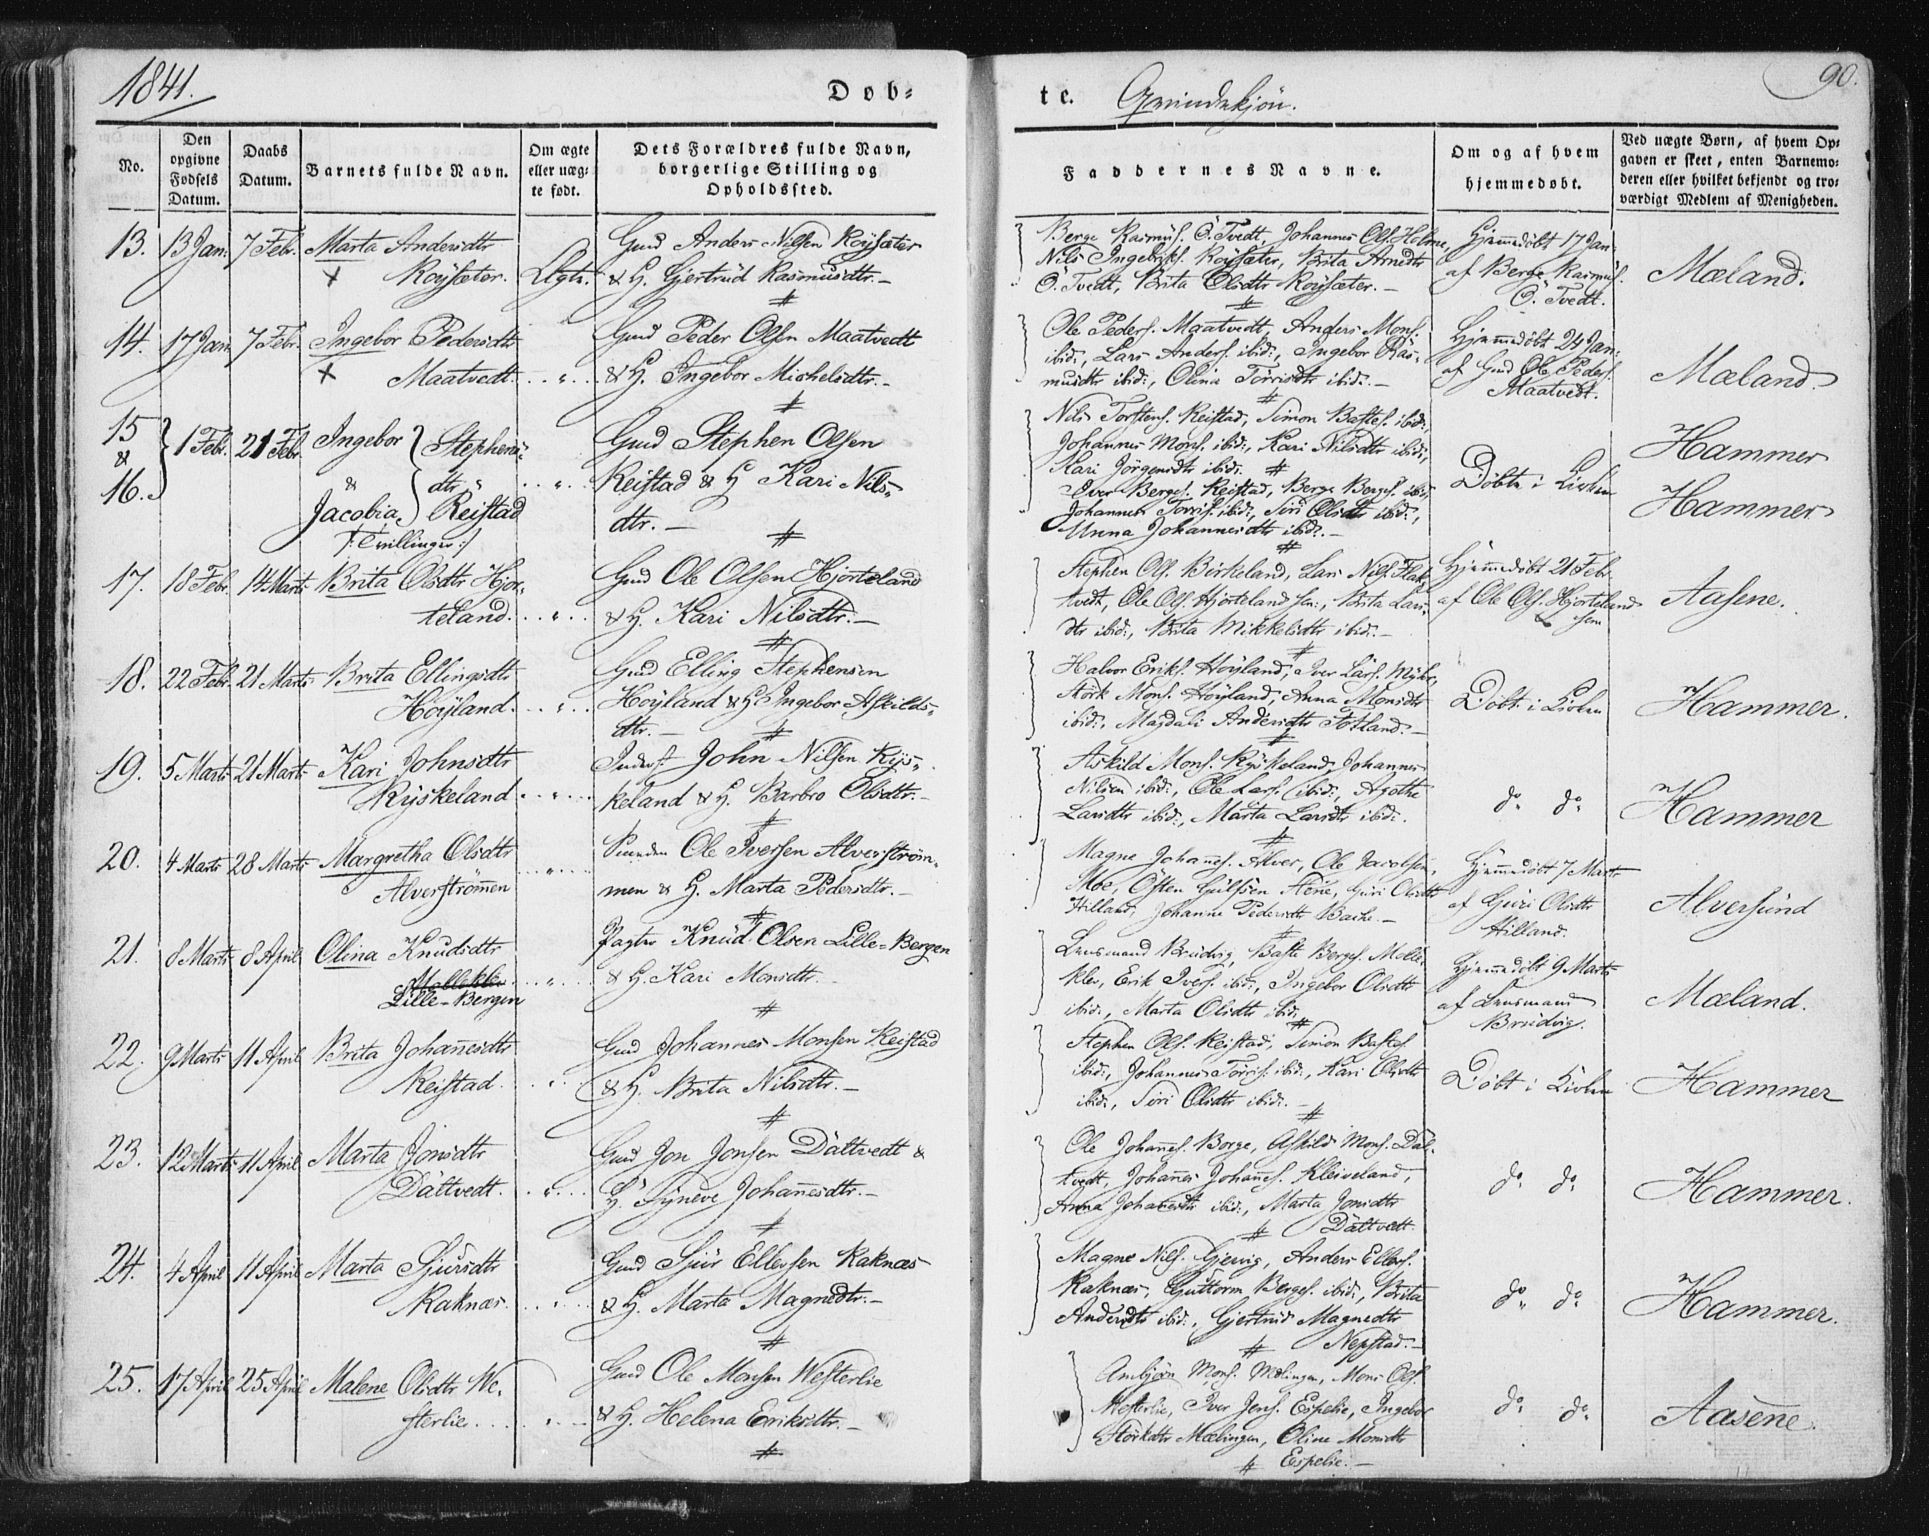 1841.
Döb-
te. Qvindekjön.
90.
No.
Den opgivne Fødsels Datum.
Daabs Datum.
Barnets fulde Navn.
Om ægte eller uægte født.
Dets Forældres fulde Navn, borgerlige Stilling og Opholdssted.
Faddernes Navne.
Om og af hvem hjemmedøbt.
Ved uægte Børn, af hvem Opgaven er skeet, enten Barnemoderen eller hvilket bekjendt og troværdigt Medlem af Menigheden.
13. 13 Jan: 7 Febr. Marta Andersdtr
Röysæter. Ægte.
Gmd Anders Nilsen Röysæter
& H. Gjertrud Rasmusdtr.-
Berge Rasmus. Ö. Tvedt, Johannes Ols. Holme,
Nils Ingebriks. Röysæter, Brita Arnedtr
Ö. Tvedt, Brita Olsdtr Röysæter.-
Hjemmedöbt 17 Jan:
af Berge Rasmus.
Ö. Tvedt.
Mæland.
14. 17 Jan 7 Febr. Ingebor Pedersdtr
Maatvedt.
Gmd Peder Olsen Maatvedt
& H. Ingebor Michelsdtr.-
Ole Peders. Maatvedt, Anders Mons.
ibid:, Lars Anders. ibid:, Ingebor Ras-
musdtr ibid:, Olina Torrisdtr ibid:.-
Hjemmedöbt 24 Jan:
af Gmd Ole Peders.
Maatvedt.
Mæland
15 & 16. 1 Febr. 21 Febr. Ingebor & Jacobia, Stephens-
dtr Reistad
/: Tvillinger :/
Gmd Stephen Olsen
Reistad & H Kari Nils-
dtr.-
Nils Torstens. Reistad, Simon Bastes. ibid:,
Johannes Mons. ibid:, Kari Nilsdtr ibid:,
Kari Jörgensdtr ibid:.
Iver Berges. Reistad, Berge Berges. ibid:
Johannes Torris. ibid:, Siri Olsdtr ibid:,
Anna Johannesdtr ibid:.-
Döbte i Kirken
Hammer
Hammer
17. 18 Febr. 14 Marts Brita Olsdtr Hjor-
teland.
Gmd Ole Olsen Hjorteland
& H. Kari Nilsdtr.-
Stephen Ols. Birkeland, Lars Nils. Flak-
tvedt, Ole Ols. Hjorteland sen:, Brita Lars-
dtr ibid:, Brita Mikkelsdtr ibid:.-
Hjemmedöbt 21 Febr.
af Ole Ols. Hjorteland
sen
Aasene.
18. 22 Febr. 21 Marts Brita Ellingsdtr
Höyland.
Gmd Elling Stephensen
Höyland & H Ingebor Askilds-
dtr.-
Halvor Eriks. Höyland, Iver Lars. Myhr,
Störk Mons. Höyland, Anna Monsdtr
ibid:, Magdali Andersdtr Totland.-
Döbt i Kirken
Hammer.
19. 5 Marts 21 Marts Kari Johnsdtr
Ryskeland.
Inderst John Nilsen Rys-
keland & H. Barbro Olsdtr.-
Askild Mons. Ryskeland, Johannes
Nilsen ibid:, Ole Lars. ibid:, Agothe
Larsdtr ibid:, Marta Larsdtr ibid:.
do do
Hammer
20. 4 Marts 28 Marts Margretha Olsdtr
Alverströmen
Ole Iversen Alverström-
men & H. Marta Pedersdtr.-
Magne Johans. Alver, Ole Jacobsen,
Moe, Östen Gulsen Hene, Guri Olsdtr
Hilland, Johanne Pedersdtr Backe.-
Hjemmedöbt 7 Marts
af Guri Olsdtr
Hilland.
Alversund
21. 8 Marts 8 April Olina Knudsdtr
Mollekleu
Lille-Bergen
Knud Olsen Lille-Bergen
& H. Kari Monsdtr.
Lensmand Brudvig, Baste Berges. Molle-
kleu, Erik Ivers. ibid:, Ingebor Olsdtr
ibid:, Marta Olsdtr ibid.
Hjemmedöbt 9 Marts
af Lensmand
Brudvig.
Mæland.
22. 9 Marts 11 April Brita Johanesdtr
Reistad.
Gmd Johannes Monsen Reistad
& H. Brita Nilsdtr.-
Stephen Ols. Reistad, Simon Bastes.
ibid:, Johannes Torris. ibid:, Kari Olsdtr
ibid:, Siri Olsdtr ibid:.-
Döbt i Kirken
Hammer
23. 12 Marts 11 April Marta Jonsdtr
Daltvedt.
Gmd Jon Jonsen Daltvedt &
H. Synneve Johanesdtr.-
Ole Johans. Borge, Askild Mons. Dal-
tvedt, Johanes Johans. Kleiveland,
Anna Johanesdtr ibid:, Marta Jonsdtr
Daltvedt.
do do
Hammer.
24. 4 April 11 April Marta Sjursdtr
Raknæs.
Gmd Sjur Ellevsen Raknæs
& H. Marta Magnedtr.-
Magne Nils. Gjervig, Anders Ellevs.
Raknæs, Guttorm Berges. ibid:, Brita
Andersdtr ibid:, Gjertrud Magnedtr
Nepstad.-
do do
Hammer.
25. 17 April 25 April Malene Olsdtr We-
sterlie.
Gmd Ole Monsen Westerlie
& H. Helena Eriksdtr.-
Ambjörn Mons. Mælingen, Mons Ols.
Westerlie, Iver Jens. Espelie, Ingebor
Störksdtr Mælingen, Oline Monsdtr
Espelie.-
do do
Aasene